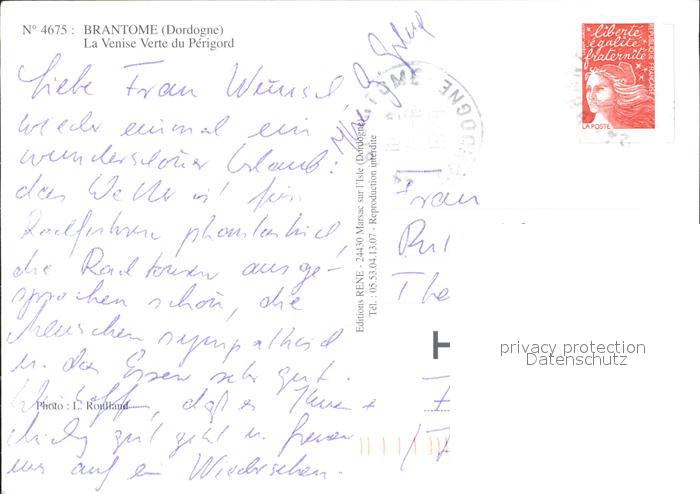 N° 4675 : BRANTOME (Dordogne)
La Venise Verte du Périgord
Liebe Frau Wünsel,
wieder einmal ein
wunderschöner Urlaub:
das Wetter ist für
Radfahren phantastisch,
die Radtouren ausge-
sprochen schön, die
Menschen sympathisch
u. das Essen sehr gut.
Wir hoffen, daß es Ihnen +
gut geht u. freuen
uns auf ein Wiedersehen.
Photo : L. Roulland
Editions RENE - 24430 Marsac sur l'Isle (Dordogne)
Tél. : 05.53.04.13.07 - Reproduction interdite
DORDOGNE
liberté
égalité
fraternité
RÉPUBLIQUE FRANÇAISE
LA POSTE
Frau
The
privacy protection
Datenschutz